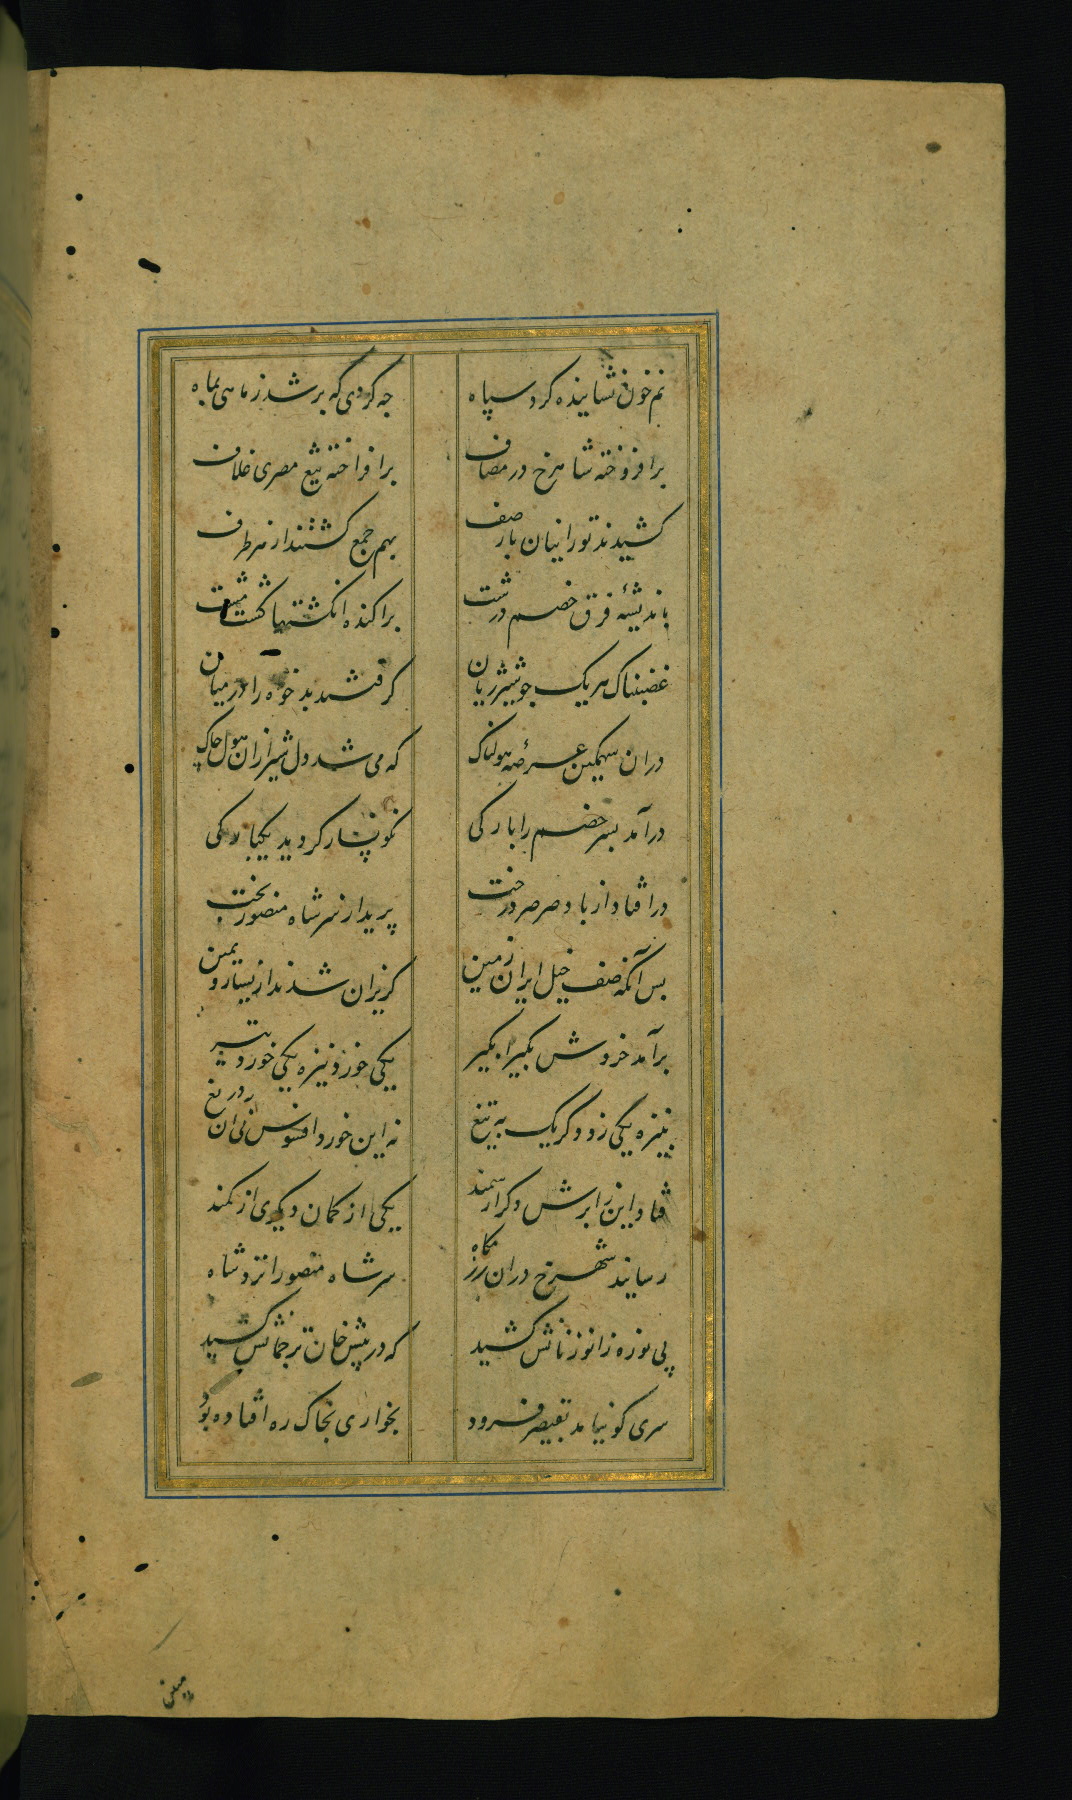 نم خون نشاینده کرد سپاه جه کردی که برشد ز ماهی بماه
برافروخته شاهرخ در مصاف برافراخته تیغ مصری غلاف
کشیدند تورانیان بار صف بهم جمع کشتند از هر طرف
باندیشهٔ فرق خصم درشت براکنده انکشتها کشت مشت
غضبناک هریک جو شیر ژیان کرفتند بدخوه را در میان
دران سهمکین عرصهٔ هولناک که می شد دل شیر ازان هول جاک
درآمد بسر خصم را بارکی نکونسار کردید یکبارکی
درافتاد از باد صرصر درخت پرید از سر شاه منصور بخت
بس آنکه صف خیل ایران زمین کریزان شدند از یسار و یمین
برآمد خروش بکیرا بکیر یکی خورد نیزه یکی خورد تیر
بنیزه یکی زد دکر یک به تیغ نه این خورد افسوس نی آن دریغ
فتاد این ز ابرش دکر از سمند یکی از کمان دیکری از کمند
رسانید شهرخ دران رزمکاه سر شاه منصور را نزد شاه
پی نوزه زانو زنانش کشید که در پیش خان ترخانش کشید
سری کو نیامد بقیصر فرود بخواری بخاک ره افتاده بود